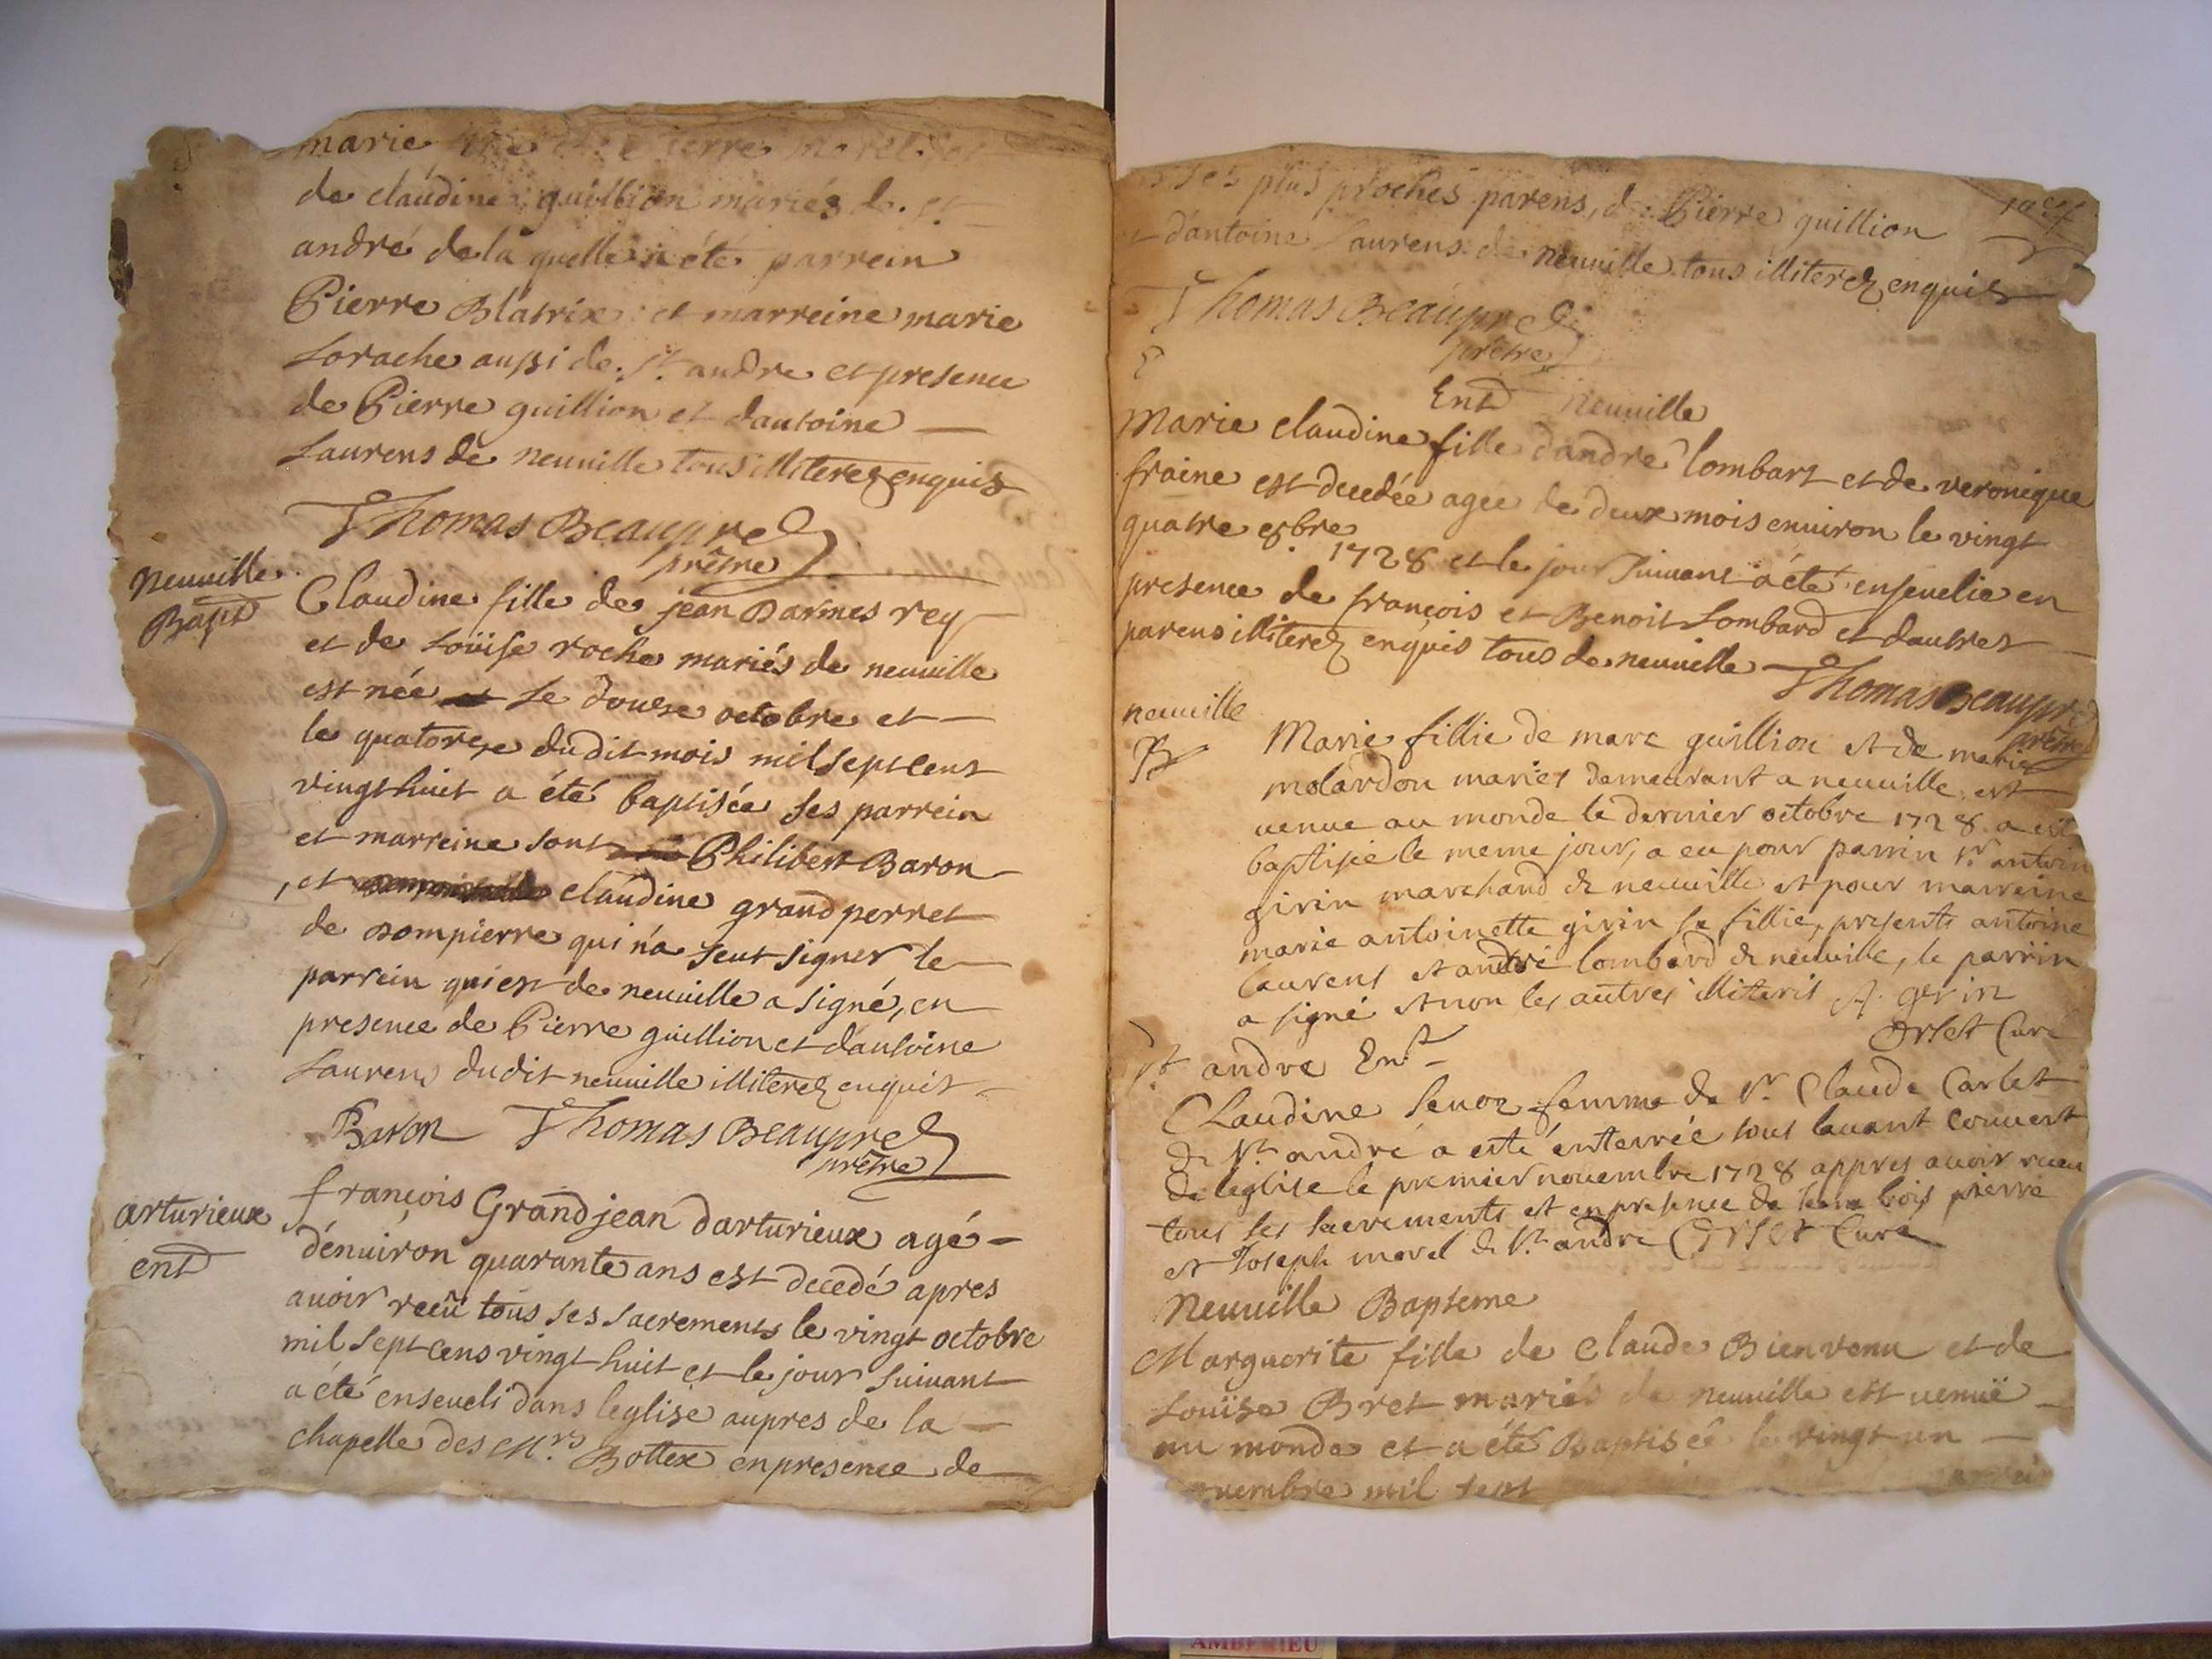 marie
de claudine guillion mariés de St
andré de la quelle a été parrein
Pierre Blatrix et marreine marie
Lorache aussi de St andre et presence
de Pierre guillion et dantoine
Laurens de neuville tous illiterez enquis
Thomas Beaupré
prêtre
neuville
Bapt
Claudine fille de jean Darmes rey
et de Loüise roche mariés de neuville
est née le douse octobre et
le quatorze dudit mois mil sept cent
vingt huit a été baptisée ses parrein
et marreine sont Philibert Baron
et claudine grand perret
de Dompierre qui n'a seut signer le
parrein qui est de neuville a signé, en
presence de Pierre guillion et dantoine
Laurens dudit neuville illiterez enquis
Baron Thomas Beaupré
prêtre
arturieux
ent
françois Grandjean darturieux agé
dénuiron quarante ans est decedé apres
auoir recû tous ses sacrements le vingt octobre
mil sept cens vingt huit et le jour suiuant
a été enseueli dans leglise aupres de la
chapelle des Mrs Bottex en presence de
ses plus proches parens, de Pierre guillion
et dantoine Laurens de neuuille tous illiterez enquis
Thomas Beaupré
prêtre
Ent neuuille
Marie claudine fille dandre lombart et de veronique
fraine est decedée agée de deux mois enuiron le vingt
quatre 8bre 1728 et le jour suiuant a été enseuelie en
presence de françois et Benoit Lombard et dautres
parens illiterez enquis tous de neuuille Thomas Beaupré
prêtre
neuuille
B
Marie fillie de marc guillion et de marie
molardon mariés demeurant a neuuille est
uenue au monde le dernier octobre 1728 a esté
baptisée le meme jour, a eu pour parrin Sr antoin
girin marchand de neuuille et pour marreine
marie antoinette girin sa fillie, presents antoine
laurens et andré lombard de neuuille, le parrin
a signé et non les autres illiteris A. girin
Orset Curé
St andre Ent
Claudine Senoz femme de Sr Claude Carlet
de St andré a esté enterrée sous lauant couuert
de leglise le premier nouembre 1728 appres auoir receu
tous ses sacrements et en presence de bois pierre
et Joseph morel de St andre Orset Curé
Neuuille Bapteme
Marguerite fille de Claude Bienvenu et de
Loüise Bret mariés de neuuille est uenuë
au monde et a été Baptisée le vingt un
mil sept